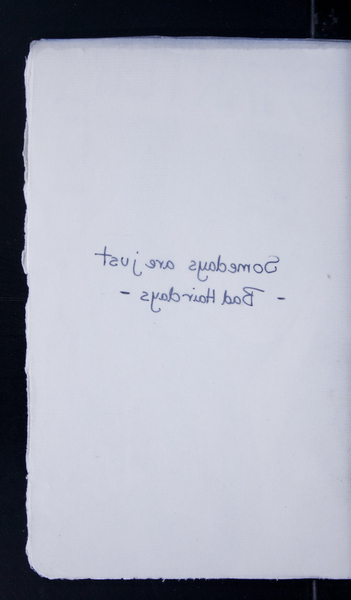 Somedays are just
- Bad Hair days -